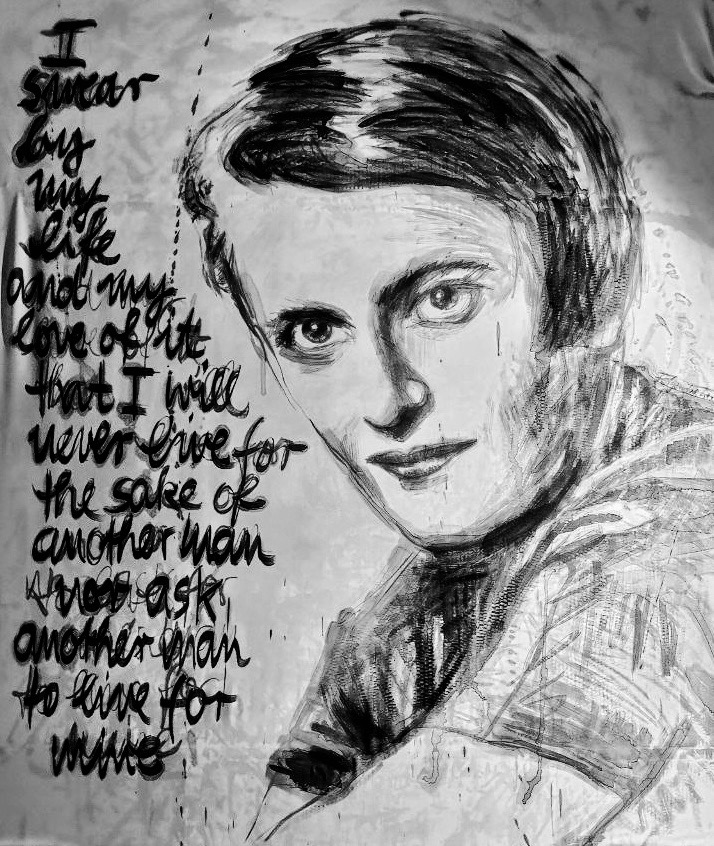 I
swear
by
my
life
and my
love of it
that I will
never live for
the sake of
another man
nor ask
another man
to live for
mine